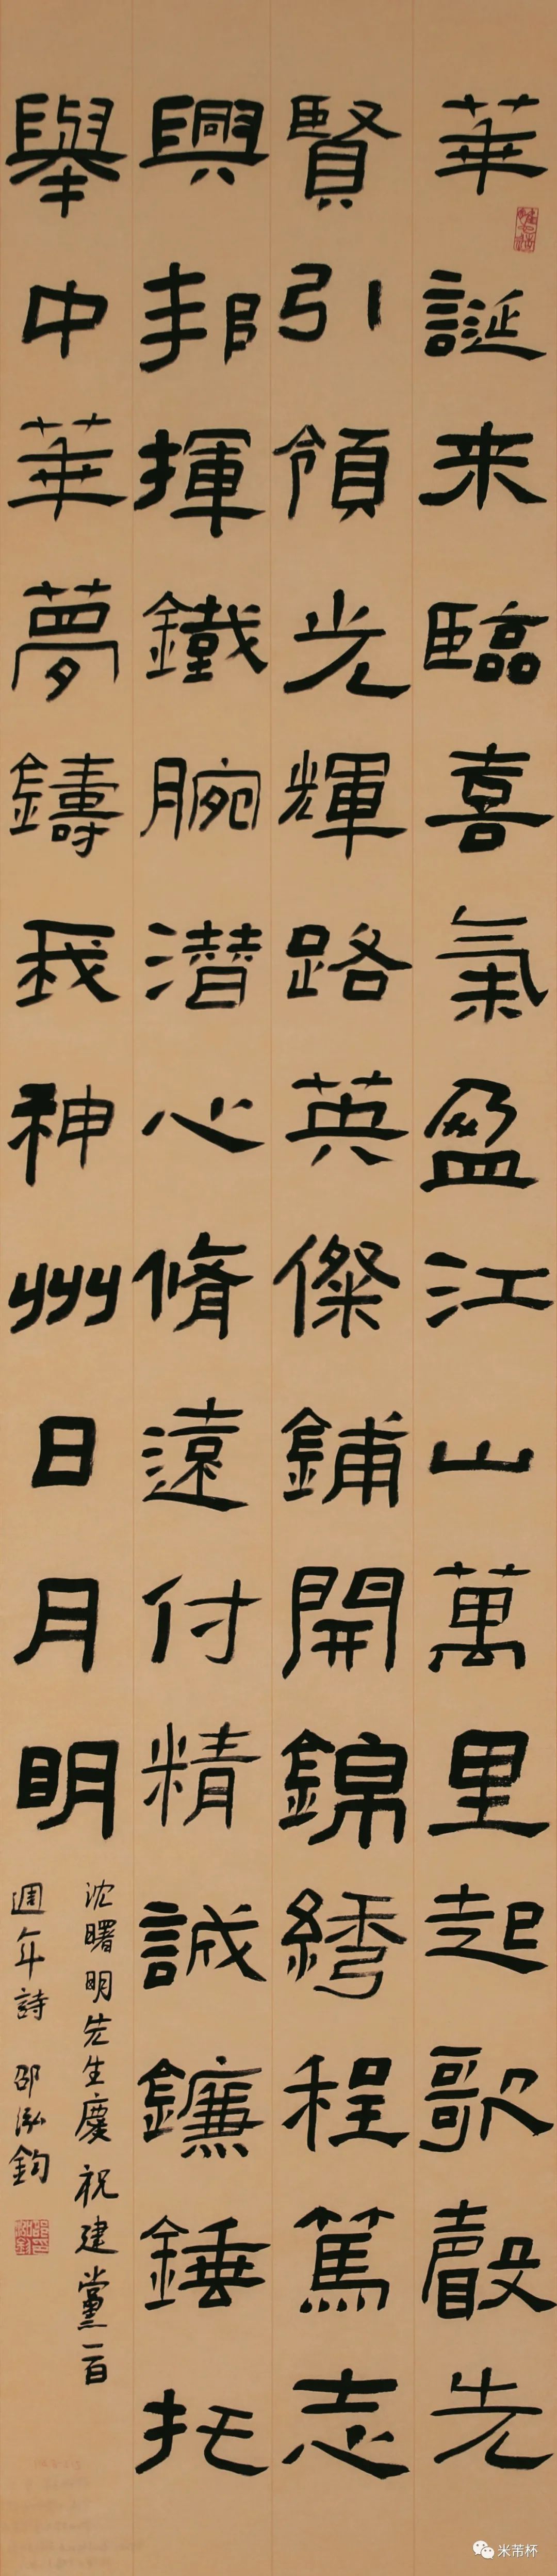 華誕来臨喜氣盈江山萬里起歌聲先
賢引領光輝路英傑鋪開錦繡程篤志
興邦揮鐵腕潛心脩遠付精誠鐮錘托
舉中華夢鑄我神州日月明
沈曙明先生慶祝建黨一百
週年詩 邵泓鈞
米芾杯